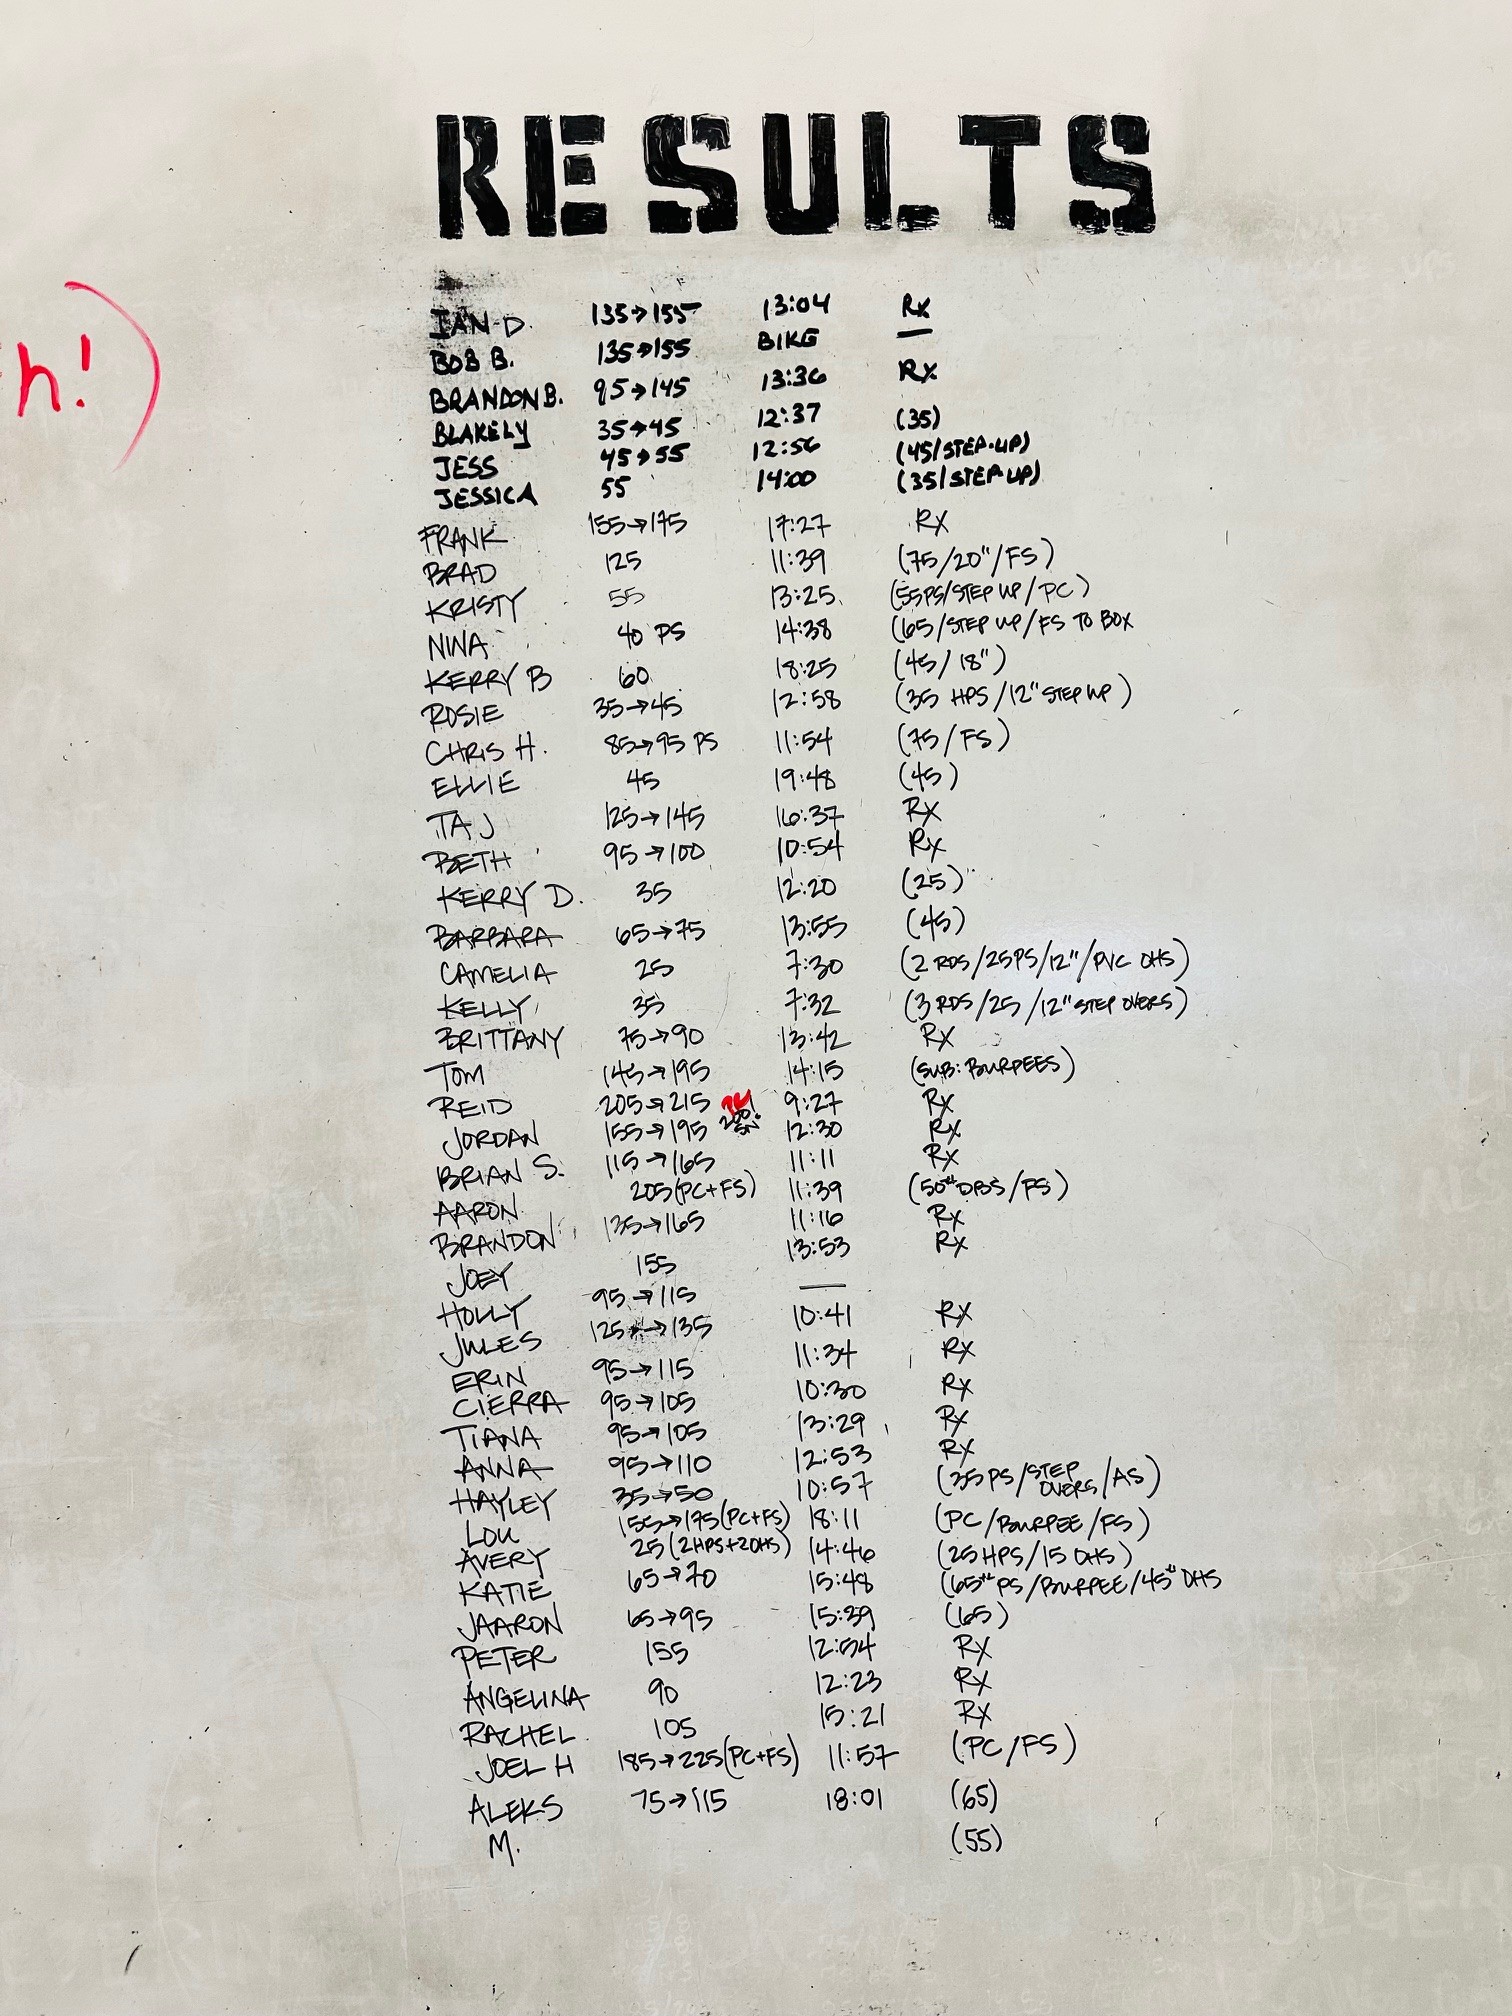 RESULTS
h!)
IAN D. 135→155 13:04 Rx
BOB B. 135→155 BIKE —
BRANDON B. 95→145 13:36 Rx
BLAKELY 35→45 12:37 (35)
JESS 45→55 12:56 (45/STEP-UP)
JESSICA 55 14:00 (35/STEP-UP)
FRANK 155→175 17:27 RX
BRAD 125 11:39 (75/20"/FS)
KRISTY 55 13:25 (55PS/STEP UP/PC)
NINA 40 PS 14:38 (65/STEP UP/FS TO BOX
KERRY B 60 18:25 (45/18")
ROSIE 35→45 12:58 (35 HPS/12" STEP UP)
CHRIS H. 85→95 PS 11:54 (75/FS)
ELLIE 45 19:48 (45)
TAJ 125→145 16:37 RX
BETH 95→100 10:54 Rx
KERRY D. 35 12:20 (25)
BARBARA 65→75 13:55 (45)
CAMELIA 25 7:30 (2 RDS/25PS/12"/PVC OHS)
KELLY 35 7:32 (3 RDS/25/12" STEP OVERS)
BRITTANY 75→90 13:42 RX
TOM 145→195 14:15 (SUB: BURPEES)
REID 205→215 9:27 Rx
JORDAN 155→195 200! SN 12:30 Rx
BRIAN S. 115→165 11:11 Rx
AARON 205(PC+FS) 11:39 (50# DBS/FS)
BRANDON 135→165 11:16 Rx
JOEY 155 13:53 Rx
HOLLY 95→115 —
JULES 125→135 10:41 RX
ERIN 95→115 11:34 RX
CIERRA 95→105 10:30 RX
TIANA 95→105 13:29 RX
ANNA 95→110 12:53 RX
HAYLEY 35→50 10:57 (35PS/STEP OVERS/AS)
LOU 155→175(PC+FS) 18:11 (PC/BURPEE/FS)
AVERY 25(2HPS+2OHS) 14:46 (25HPS/15 OHS)
KATIE 65→70 15:48 (65# PS/BURPEE/45# OHS
JAARON 65→95 15:39 (65)
PETER 155 12:54 RX
ANGELINA 90 12:23 RX
RACHEL 105 15:21 RX
JOEL H 185→225(PC+FS) 11:57 (PC/FS)
ALEKS 75→115 18:01 (65)
M. (55)